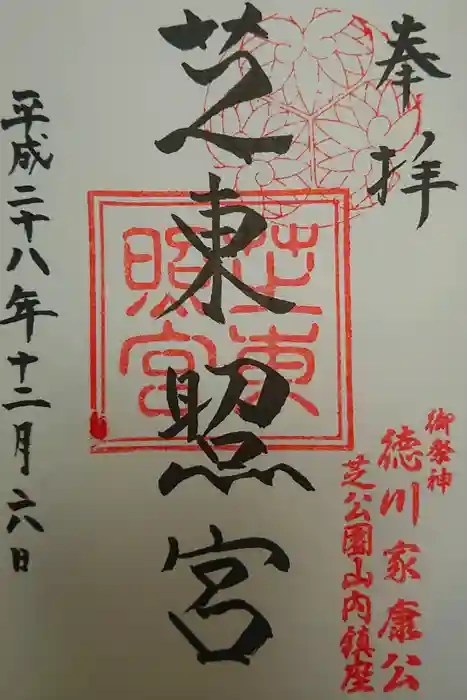 奉拝
御祭神
徳川家康公
芝公園山内鎮座
芝東照宮
芝東照宮
平成二十八年十二月六日